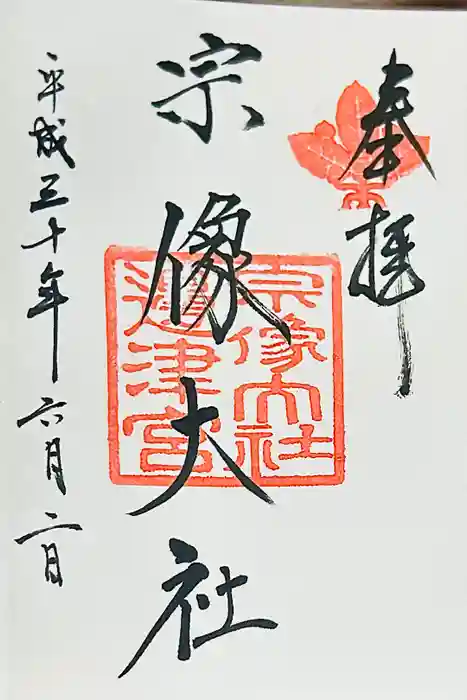 奉拝
宗像大社
宗像大社
邊津宮
平成三十年六月二日